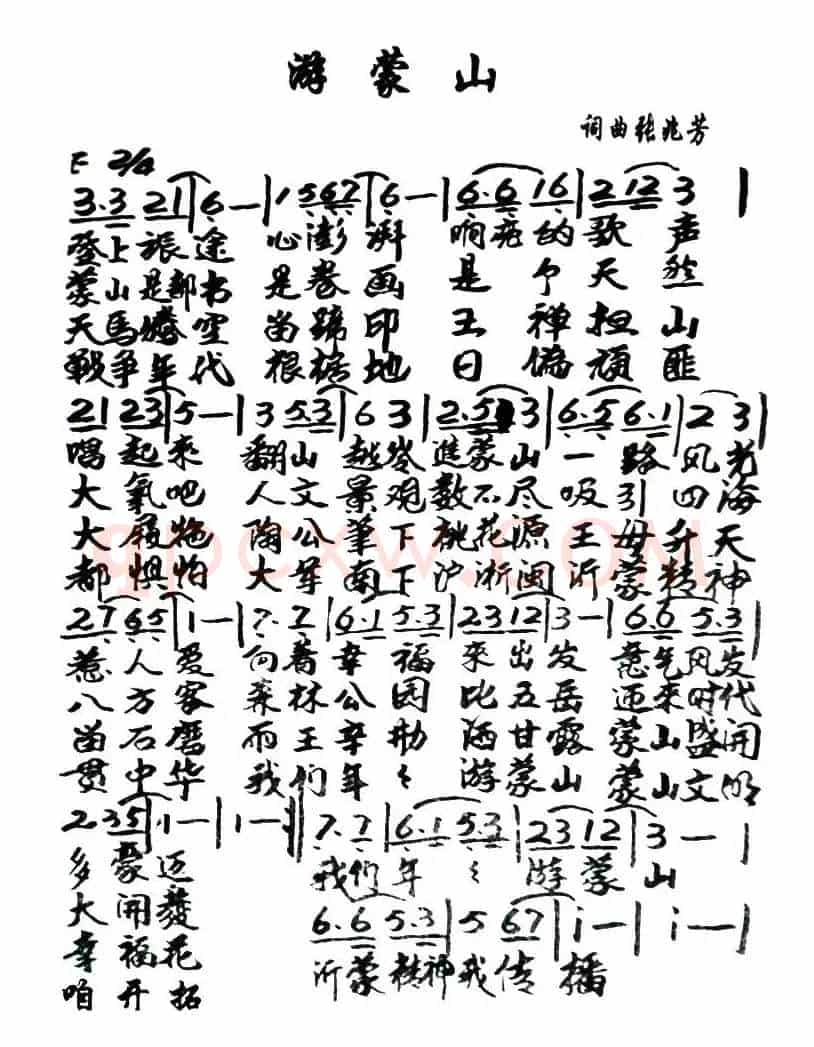 游蒙山
词曲张兆芳
F 2/4
3.3 21 | 6 — | 1 567 | 6 — | 6.6 16 | 2 12 3 |
登上旅途 心澎湃 响亮的歌声
蒙山是部书 是卷画 是个天然
天马腾空 留蹄印 玉禅担山
战争年代 根据地 日伪顽匪
21 23 | 5 — | 3 5.3 | 6 3 | 2.5 3 | 6.5 6.1 | 2 3 |
唱起来 翻山越岺进蒙山一路风光
大氧吧 人文景观数不尽吸引四海
大屐牠 陶公笔下桃花源王母升天
都惧怕 大军南下沪浙闽沂蒙精神
27 65 | i — | 7.7 | 6.1 5.3 | 23 12 | 3 — | 6.6 5.3 |
惹人爱 向着幸福来出发 意气风发
八方客 森林公园比五岳 迎来时代
留石磨 而王辛勤洒甘露 蒙山盛开
贯中华 我们年々游蒙山 蒙山文明
2.35 | i — | i — :|| 7.7 | 6.1 5.3 | 23 12 | 3 — |
多豪迈 我们年々游蒙山
大开发
幸福花
咱开拓
6.6 5.3 | 5 67 | i — | i — |
沂蒙精神我传播
qpcxw.com